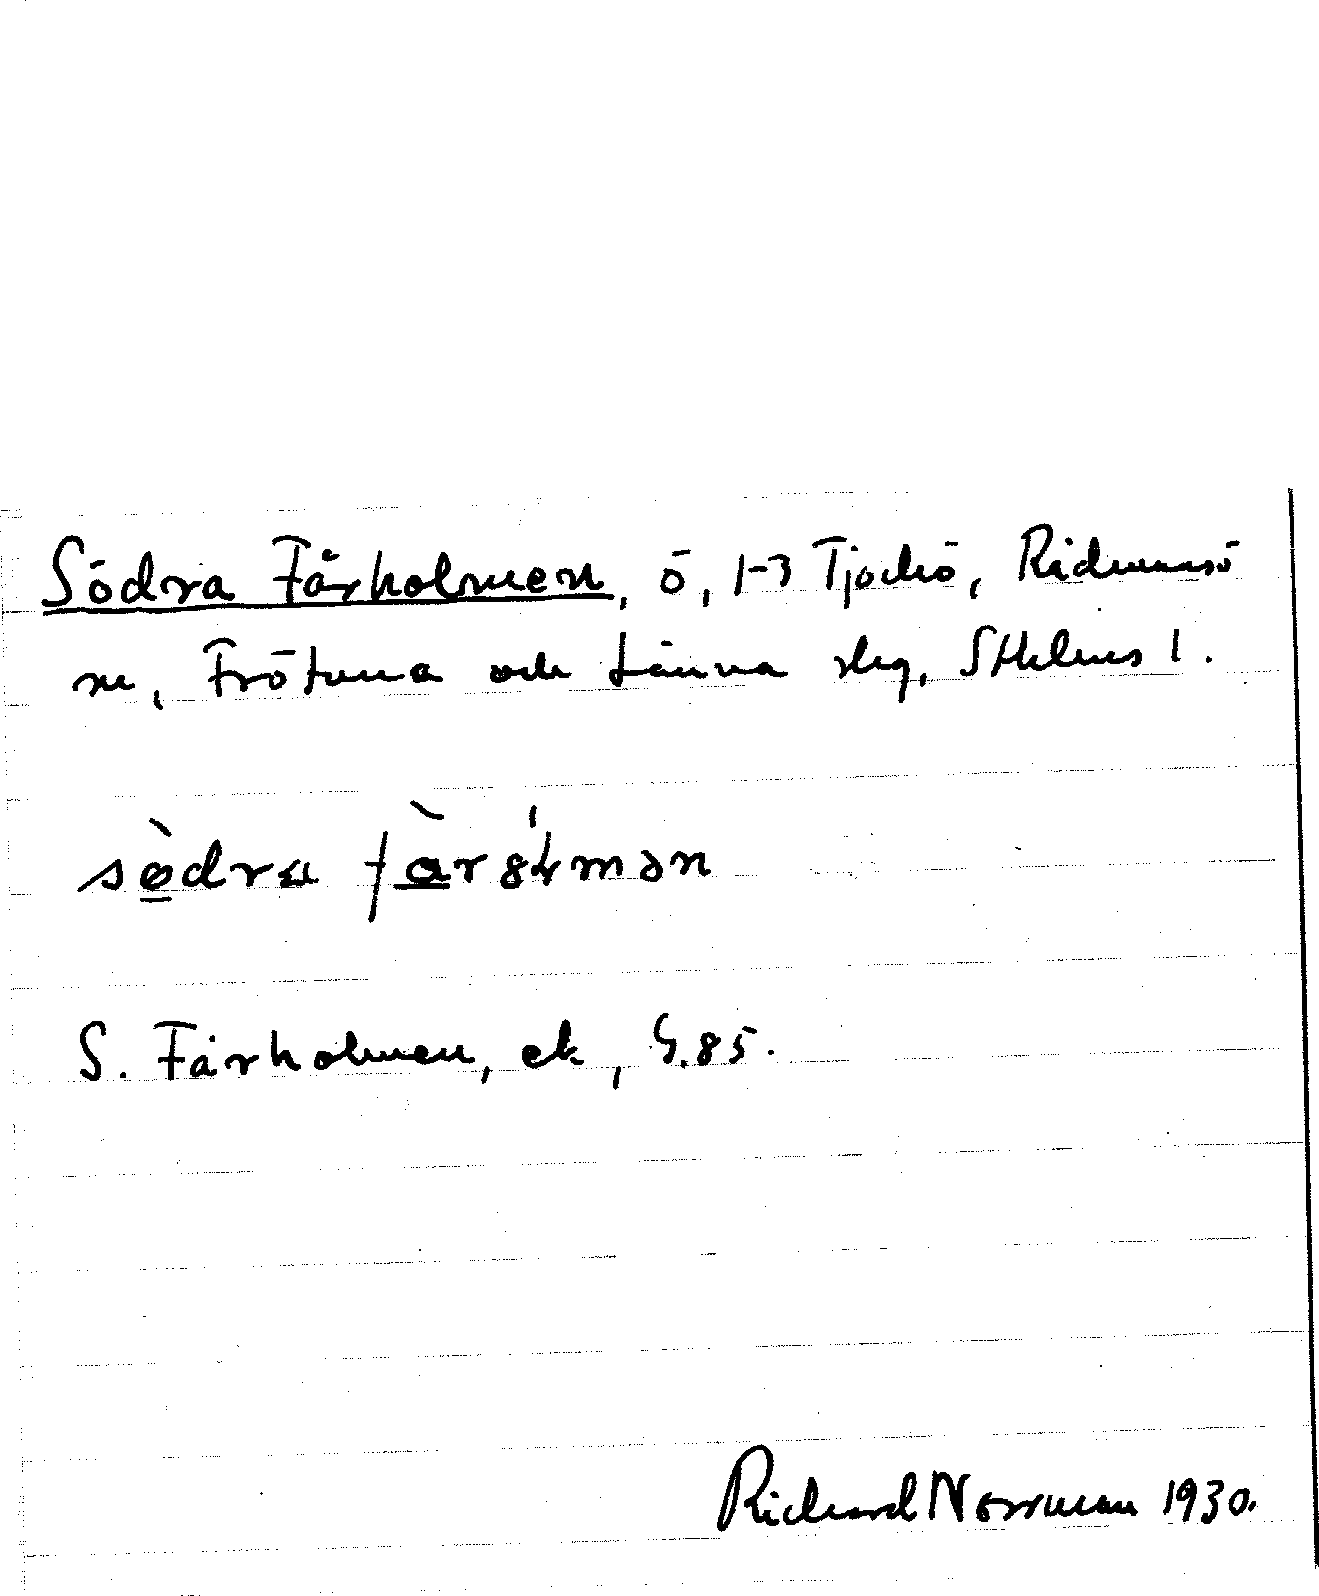 Södra Fårholmen, ö, 1-3 Tjockö, Rådmansö
sn, Frötuna och Länna skg, Sthlms l.
södra
S. Fårholmen, ek, 85.
Richard Norrman 1930.